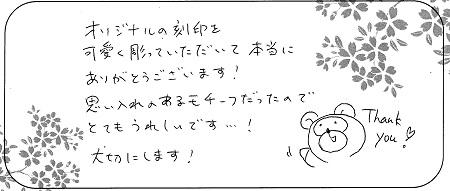 オリジナルの刻印を
可愛く彫っていただいて 本当に
ありがとうございます!
思い入れのあるモチーフだったので
とてもうれしいです…!
大切にします!
Thank
you!